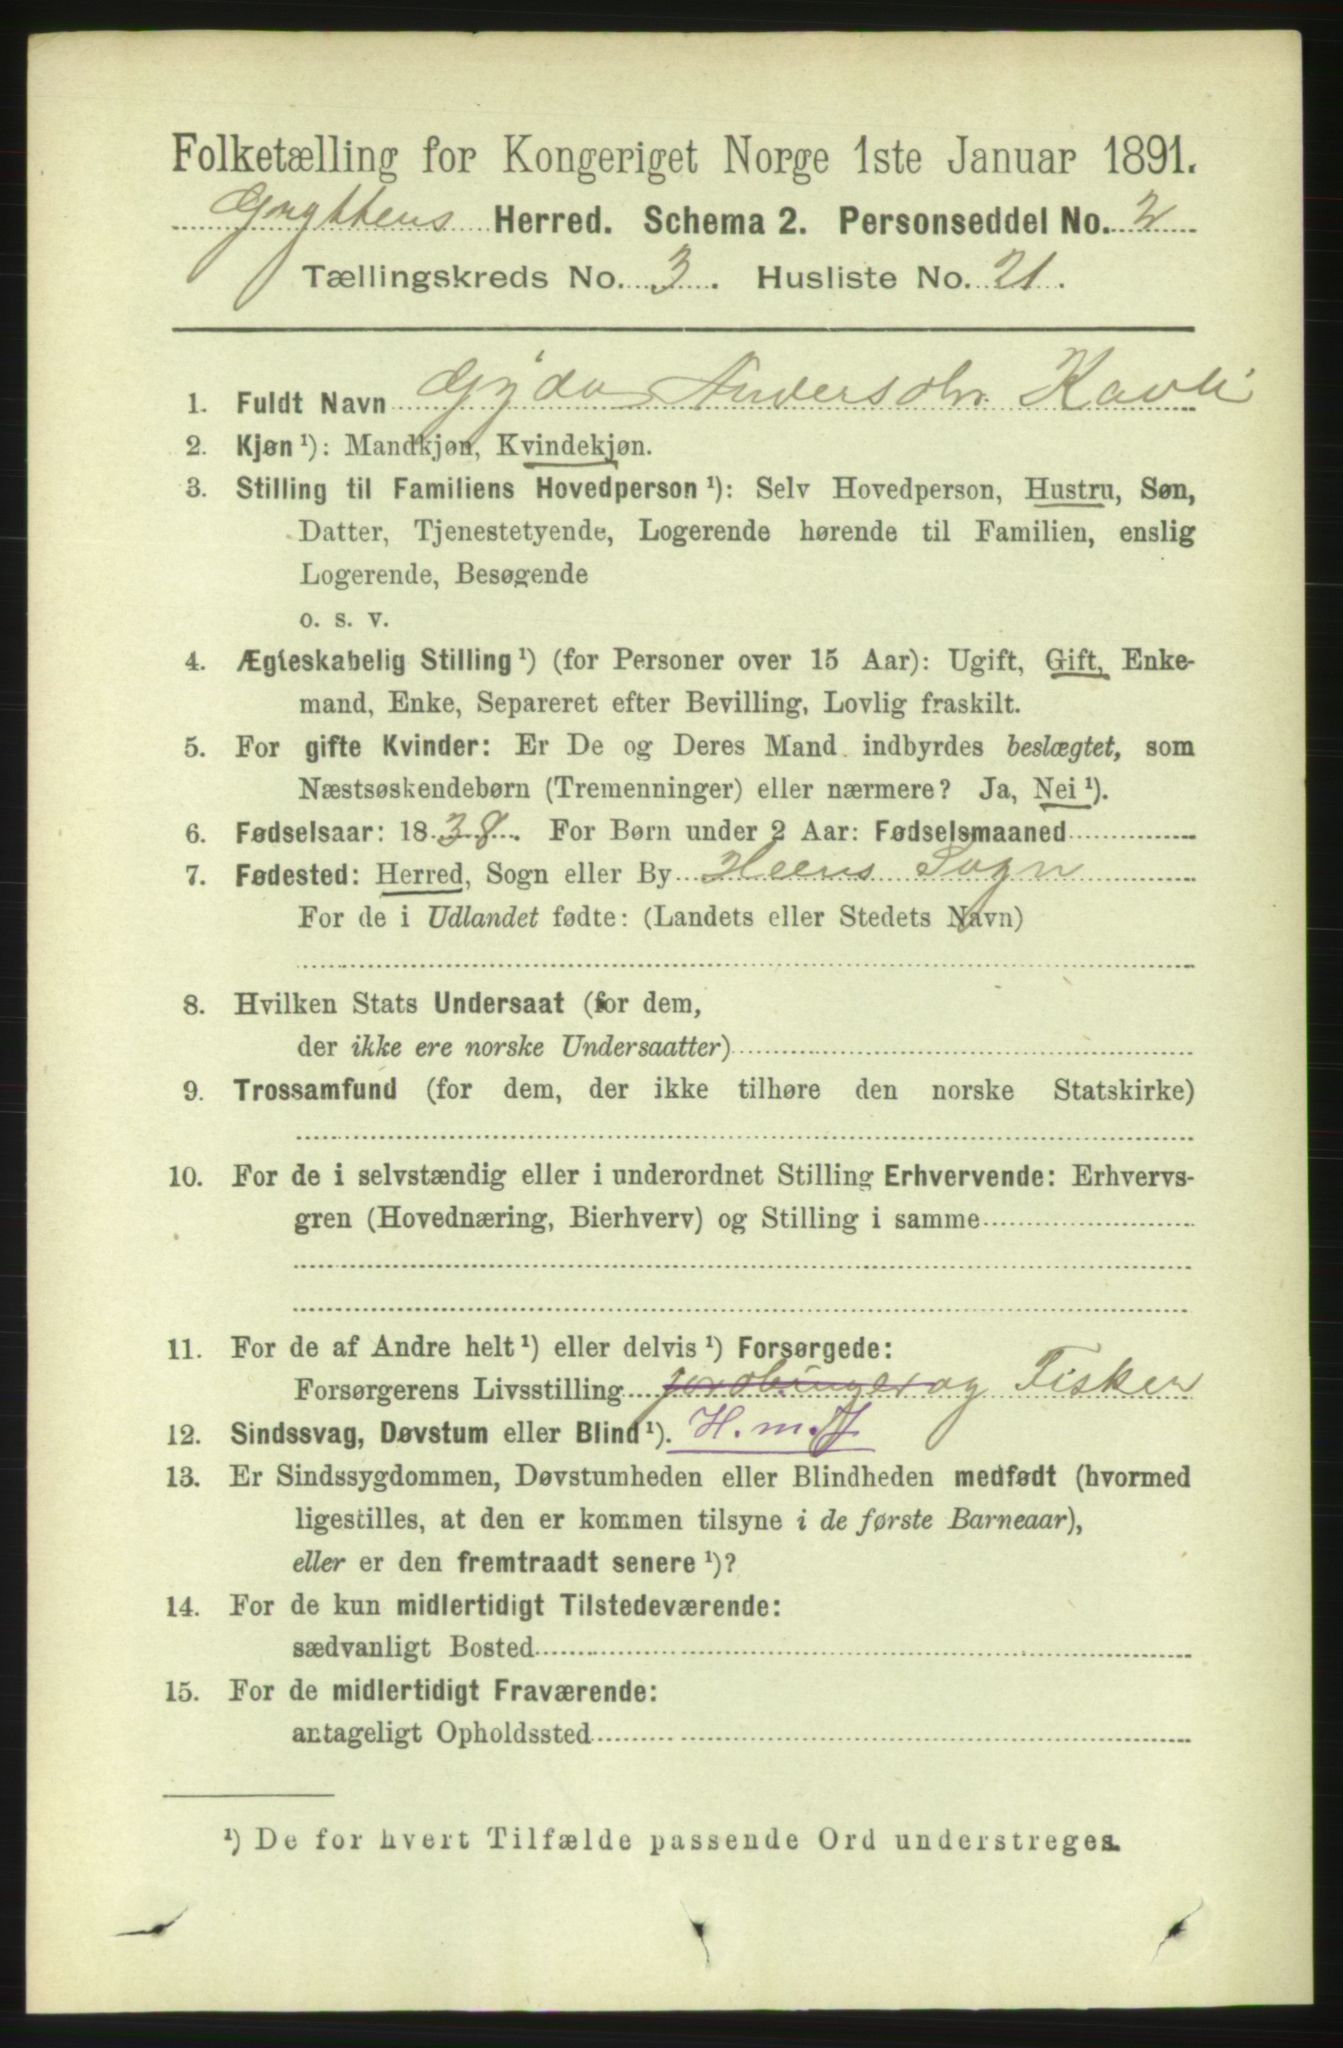 Folketælling for Kongeriget Norge 1ste Januar 1891.
Gryttens Herred. Schema 2. Personseddel No. 2
Tællingskreds No. 3. Husliste No. 21.
1. Fuldt Navn Gyda Andersdtr. Kavli
2. Kjøn ¹): Mandkjøn, Kvindekjøn.
3. Stilling til Familiens Hovedperson ¹): Selv Hovedperson, Hustru, Søn,
Datter, Tjenestetyende, Logerende hørende til Familien, enslig
Logerende, Besøgende
o. s. v.
4. Ægteskabelig Stilling ¹) (for Personer over 15 Aar): Ugift, Gift, Enke-
mand, Enke, Separeret efter Bevilling, Lovlig fraskilt.
5. For gifte Kvinder: Er De og Deres Mand indbyrdes beslægtet, som
Næstsøskendebørn (Tremenninger) eller nærmere? Ja, Nei ¹).
6. Fødselsaar: 1838. For Børn under 2 Aar: Fødselsmaaned
7. Fødested: Herred, Sogn eller By Heens Sogn
For de i Udlandet fødte: (Landets eller Stedets Navn)
8. Hvilken Stats Undersaat (for dem,
der ikke ere norske Undersaatter)
9. Trossamfund (for dem, der ikke tilhøre den norske Statskirke)
10. For de i selvstændig eller i underordnet Stilling Erhvervende: Erhvervs-
gren (Hovednæring, Bierhverv) og Stilling i samme
11. For de af Andre helt ¹) eller delvis ¹) Forsørgede:
Forsørgerens Livsstilling og Fisker
12. Sindssvag, Døvstum eller Blind ¹). H. m.
13. Er Sindssygdommen, Døvstumheden eller Blindheden medfødt (hvormed
ligestilles, at den er kommen tilsyne i de første Barneaar),
eller er den fremtraadt senere ¹)?
14. For de kun midlertidigt Tilstedeværende:
sædvanligt Bosted
15. For de midlertidigt Fraværende:
antageligt Opholdssted
¹) De for hvert Tilfælde passende Ord understreges.